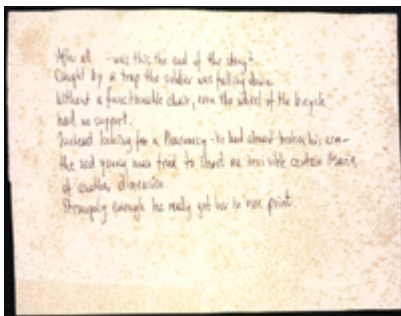 After all - was this the end of the story?
Caught by a trap the soldier was falling down.
Without a functionable chair, even the wheel of the bicycle
had no support.
Instead looking for a Pharmacy - he had almost broken his arm -
the sad young man tried to a invisible certain Maria
of another dimension.
Strangely enough he really got her in one point.